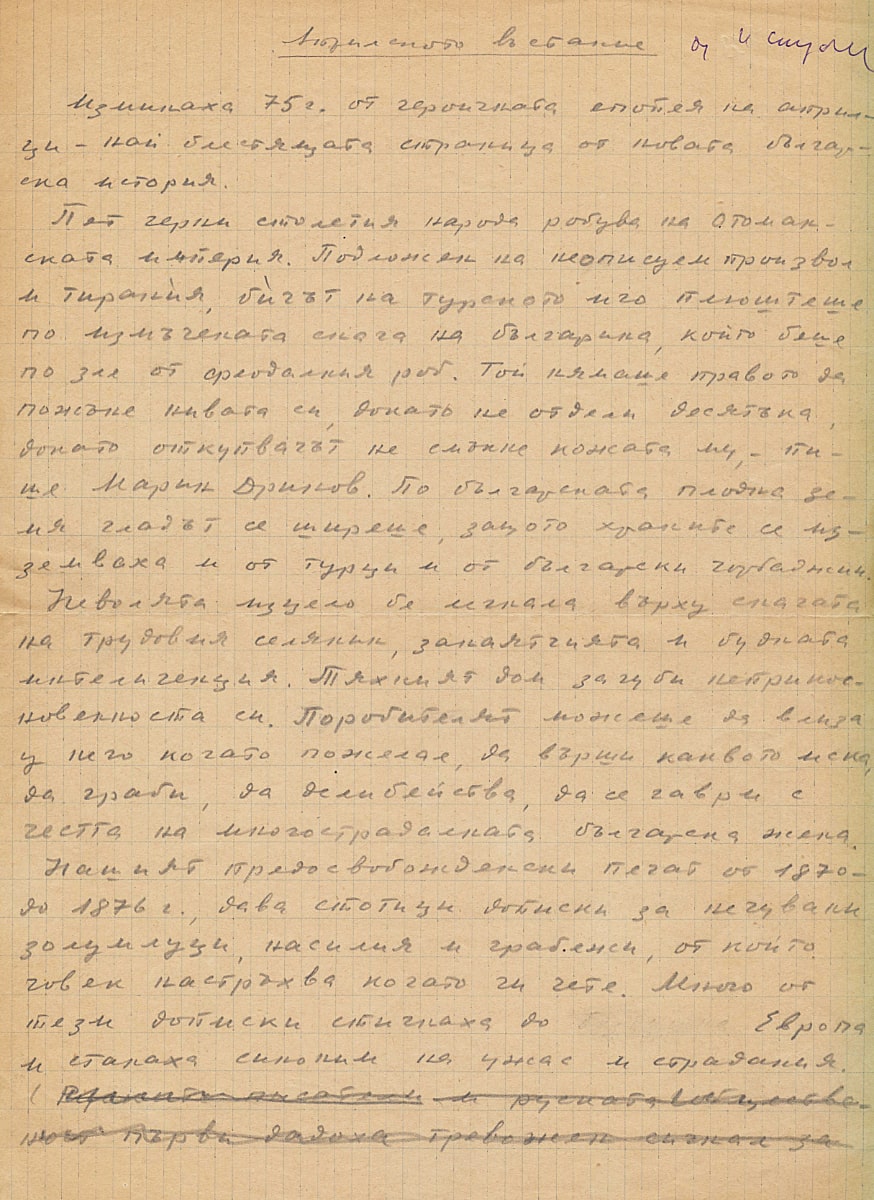 Априлското въстание от
Изминаха 75 г. от героичната епопея на април-
ци - най блестящата страница от новата българ-
ска история.
Пет черни столетия народа робува на Отоман-
ската империя. Подложен на неописуем произвол
и тирания, бичът на турското иго плющеше
по измъчената снага на българина, който беше
по зле от феодалния роб. Той нямаше правото да
пожъне нивата си, докато не отдели десятъка,
докато откупвачът не смъкне кожата му, - пи-
ше Марин Дринов. По българската плодна зе-
мя гладът се ширеше, защото храните се из-
земваха и от турци и от български чорбаджии.
Неволята изцяло бе легнала върху снагата
на трудовия селянин, занаятчията и будната
интелигенция. Техният дом загуби неприкос-
новеността си. Поробителят можеше да влиза
у него когато пожелае, да върши каквото иска,
да граби, да делибейства, да се гаври с
честта на многострадалната българска жена.
Нашият предосвобожденски печат от 1870-
до 1876 г., дава стотици дописки за нечувани
золумлуци, насилия и грабежи, от които
човек настръхва когато ги чете. Много от
тези дописки стигнаха до Европа
и станаха синоним на ужас и страдания.
( писатели и руската обществе-
ност първи дадоха тревожен сигнал за